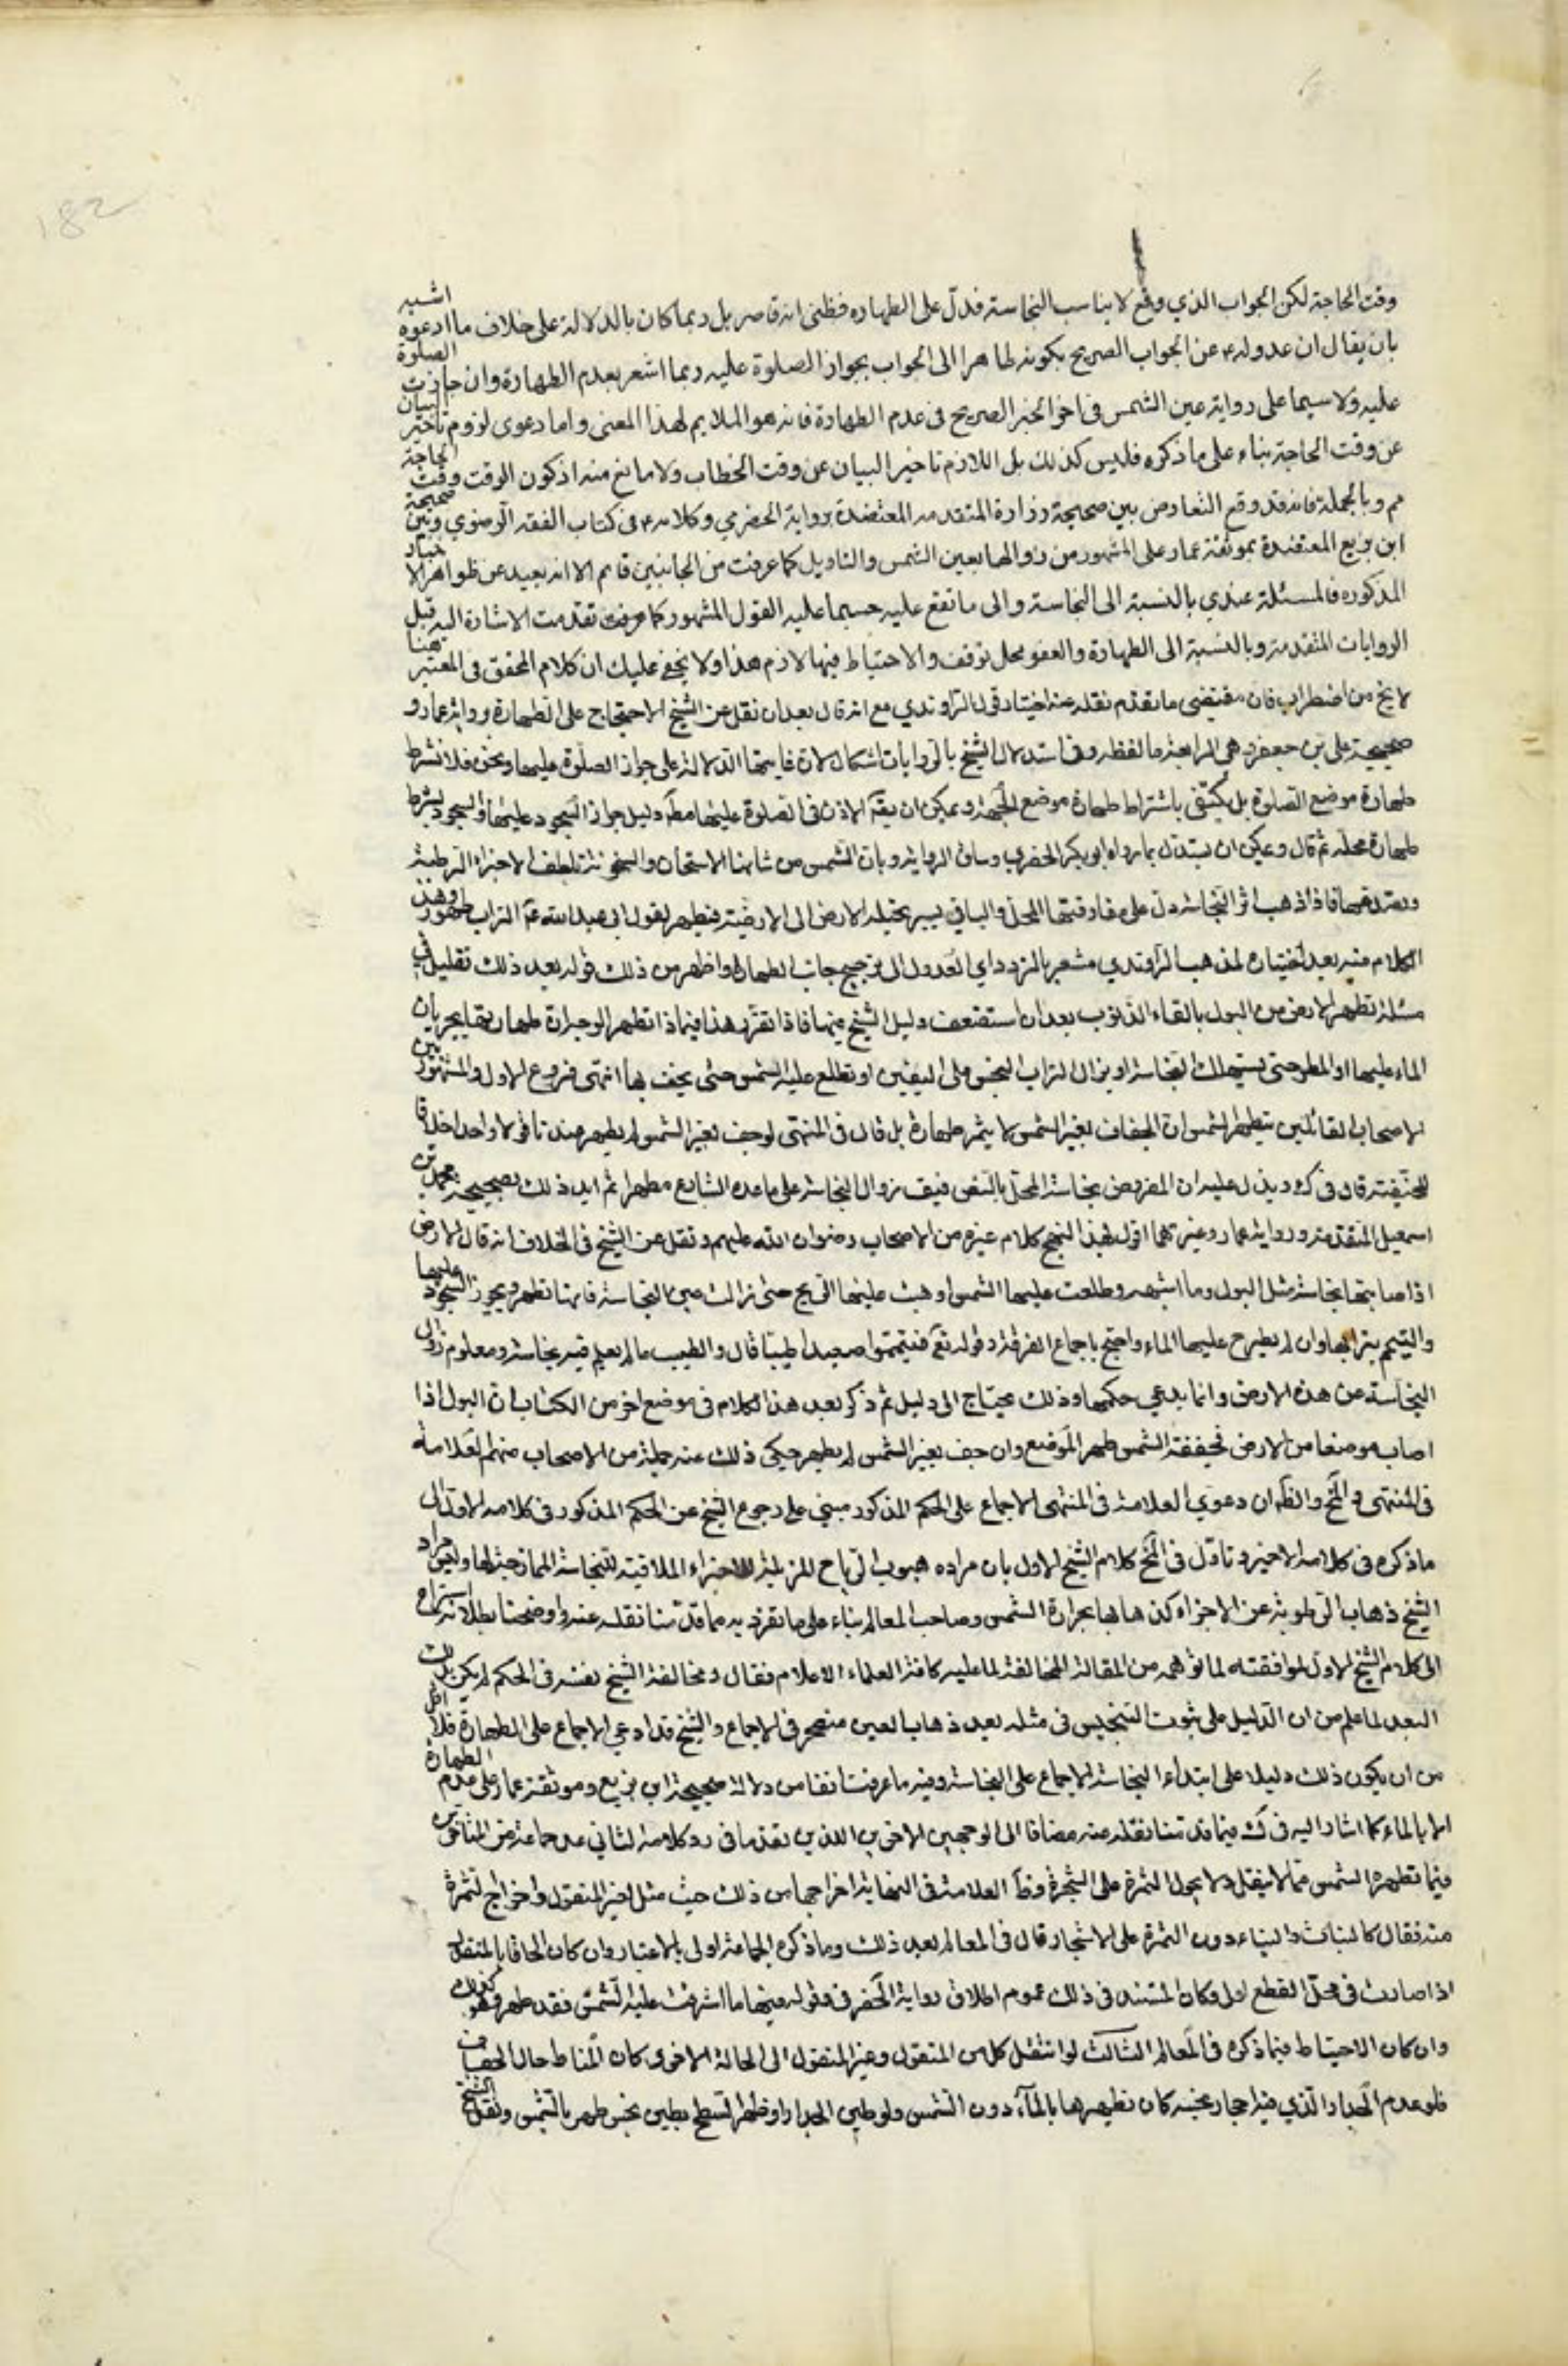 182
وقت الحاجة لكن الجواب الذي وقع لا يناسب النجاسة فدل على الطهاره فظني انه قاصر بل ربما كان بالدلالة على خلاف ما ادعوه اشبه
بان يقال ان عدوله ع عن الجواب الصريح بكونه طاهرا الى الجواب بجواز الصلوة عليه ربما اشعر بعدم الطهارة وان جازت الصلوة
عليه ولا سيما على رواية عين الشمس في اخر الخبر الصريح في عدم الطهارة فانه هو الملايم لهذا المعنى واما دعوى لزوم تاخير البيان
عن وقت الحاجة بناء على ما ذكره فليس كذلك بل اللازم تاخير البيان عن وقت الخطاب ولا مانع منه اذ كون الوقت وقت الحاجة
مم وبالجملة فانه قد وقع التعارض بين صحيحة زرارة المتقدمه المعتضدة برواية الحضرمي وكلامه ع في كتاب الفقه الرضوي وبين صحيحة
ابن بزيع المعتضدة بموثقة عمار على المشهور من زوالها بعين الشمس والتاويل كما عرفت من الجانبين قايم الا انه بعيد عن ظواهر الاخبار
المذكوره فالمسئلة عندي بالنسبة الى النجاسة والى ما تقع عليه حسبما عليه القول المشهور كما عرفت تقدمت الاشارة اليه قبل
الروايات المتقدمة وبالنسبة الى الطهارة والعفو محل توقف والاحتياط فيها لازم هذا ولا يخفى عليك ان كلام المحقق في المعتبر هنا
لا يخ من اضطراب فان مقتضى ما تقدم نقله عنه اختيار قول الراوندي مع انه قال بعد ان نقل عن الشيخ الاحتجاج على الطهارة برواية عمار و
صحيحة علي بن جعفر وهي الرابعة ما لفظه وفي استدلال الشيخ بالروايات اشكال لان غايتها الدلالة على جواز الصلوة عليها ونحن فلا نشرط
طهارة موضع الصلوة بل نكتفي باشتراط طهارة موضع الجبهة ويمكن ان يقه الاذن في الصلوة عليها مطه دليل جواز السجود عليها والسجود يشترط
طهارة محله ثم قال ويمكن ان يستدل بما رواه ابو بكر الحضرمي وساق الرواية وبان الشمس من شانها الاسخان والسخونة تلطف الاجزاء الرطبة
وتصعدها فاذا ذهب اثر النجاسة دل على مفارقتها المحل والباقي يسير تحيله الارض الى الارضية فيطهر لقول ابي عبد الله ع التراب طهور وهذا
الكلام منه بعد اختياره لمذهب الراوندي مشعر بالتردد اي العدول الى ترجيح جانب الطهارة واظهر من ذلك قوله بعد ذلك بقليل في
مسئلة تطهر الارض من البول بالقاء الذنوب بعد ان استضعف دليل الشيخ فيها فاذا تقرر هذا فبماذا تطهر الوجه ان طهارتها بجريان
الماء عليها او المطر حتى يستهلك النجاسة او يزال التراب النجس على اليقين او تطلع عليه الشمس حتى يجف بها انتهى فروع الاول المشهور بين
الاصحاب القائلين بتطهير الشمس ان الجفاف بغير الشمس لا يثمر طهارة بل قال في المنتهى لو جف بغير الشمس لم يطهر عندنا قولا واحدا خلافا
للحنفية قال في ك ويدل عليه ان المفروض نجاسة المحل بالنص فيقف زوال النجاسة على ما عده الشارع مطهرا ثم ايد ذلك بصحيحة محمد بن
اسمعيل المتقدمة ورواية عمار وغيرهما اقول وبهذا النهج كلام غيره من الاصحاب رضوان الله عليهم ونقل عن الشيخ في الخلاف انه قال الارض
اذا اصابتها نجاسة مثل البول وما اشبهه وطلعت عليها الشمس او هبت عليها الريح حتى زالت عين النجاسة فانها تطهر ويجوز السجود عليها
والتيمم بترابها وان لم يطرح عليها الماء واحتج باجماع الفرقة وقوله تع فتيمموا صعيدا طيبا قال والطيب ما لم يعلم فيه نجاسة ومعلوم زوال
النجاسة عن هذه الارض وانما يدعي حكمها وذلك يحتاج الى دليل ثم ذكر بعد هذا الكلام في موضع اخر من الكتاب ان البول اذا
اصاب موضعا من الارض فجففته الشمس طهر الموضع وان جف بغير الشمس لم يطهر حكى ذلك عنه جملة من الاصحاب منهم العلامة
في المنتهى و لخ والظه ان دعوى العلامة في المنتهى الاجماع على الحكم المذكور مبني على رجوع الشيخ عن الحكم المذكور في كلامه الاول الى
ما ذكره في كلامه الاخير وتاول في لخ كلام الشيخ الاول بان مراده هبوب الرياح المزيلة للاجزاء الملاقية للنجاسة الممازجة لها وليس مراد
الشيخ ذهاب الرطوبة عن الاجزاء كذهابها بحرارة الشمس وصاحب المعالم بناء على ما تفرد به مما قدمنا نقله عنه واوضحنا بطلانه
الى كلام الشيخ الاول لموافقته لما توهمه من المقالة المخالفة لما عليه كافة العلماء الاعلام فقال ومخالفة الشيخ نفسه في الحكم لم يكن بذلك
البعد لما علم من ان الدليل على ثبوت التنجيس في مثله بعد ذهاب العين منحصر في الاجماع والشيخ قد ادعى الاجماع على الطهارة فلا اقل
من ان يكون ذلك دليلا على ابتداء النجاسة لا اجماع على النجاسة وفيه ما عرفت انفا من دلالة صحيحة ابن بزيع وموثقة عمار على عدم الطهارة
الا بالماء كما اشار اليه في ك فيما قدمنا نقله عنه مضافا الى الوجهين الاخرين اللذين تقدما في رد كلامه الثاني عد جماعة من المتاخرين
فيما تطهره الشمس مما لا ينقل ولا يحول الثمرة على الشجرة وظه العلامة في النهاية اخراجها من ذلك حيث مثل لغير المنقول واخراج الثمرة
منه فقال كالنبات والبناء دون الثمرة على الاشجار قال في المعالم بعد ذلك وما ذكره الجماعة اولى بالاعتبار وان كان الحاقها بالمنقول
اذا صارت في محل القطع اولى وكان المستند في ذلك عموم اطلاق رواية الحضرمي وقوله فيها ما اشرقت عليه الشمس فقد طهر وهو كذلك
وان كان الاحتياط فيما ذكره في المعالم الثالث لو انتقل كل من المنقول وغير المنقول الى الحالة الاخرى كان المناط حال الجفاف
فلو هدم الجدار الذي فيه احجار نجسة كان تطهيرها بالماء دون الشمس ولو طين الجدار او ظهر السطح بطين نجس طهر بالشمس ونقل الشيخ